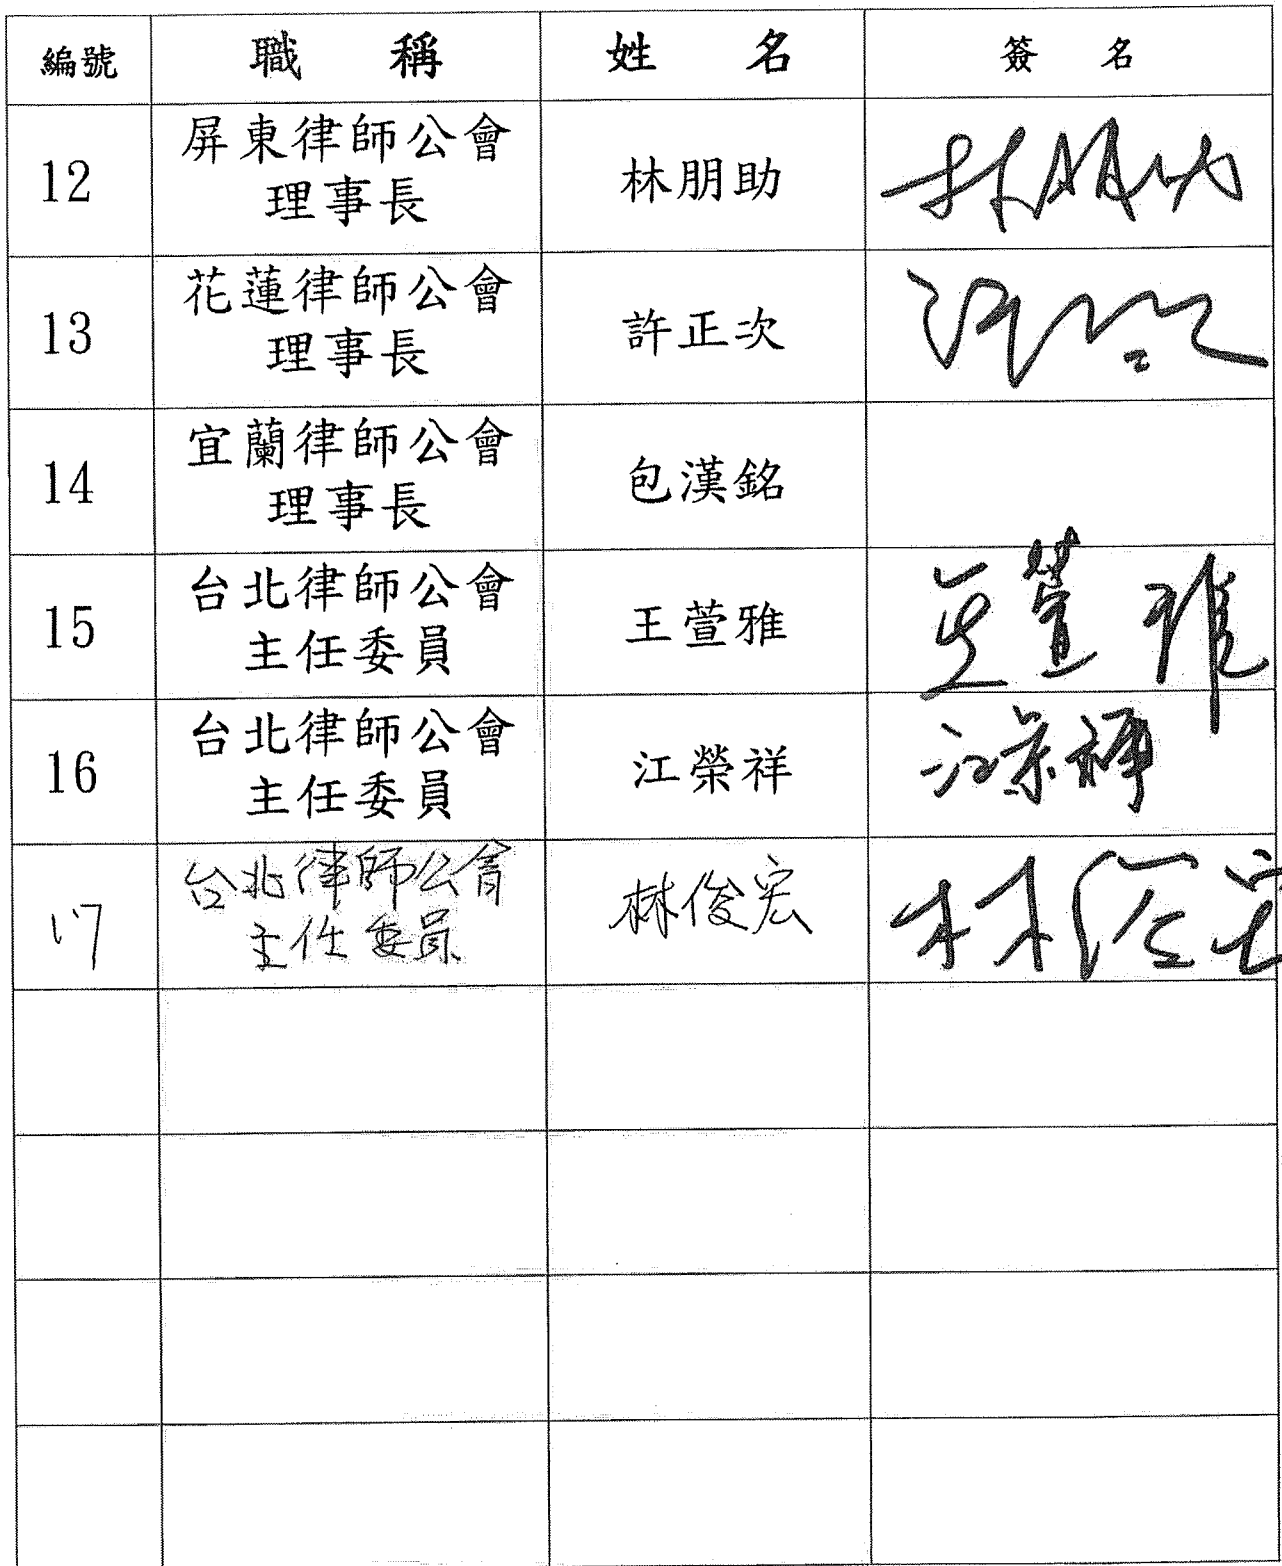 編號 職稱 姓名 簽名
12 屏東律師公會 理事長 林朋助 林朋助
13 花蓮律師公會 理事長 許正次
14 宜蘭律師公會 理事長 包漢銘
15 台北律師公會 主任委員 王萱雅 王萱雅
16 台北律師公會 主任委員 江榮祥 江榮祥
17 台北律師公會 主任委員 林俊宏 林俊宏